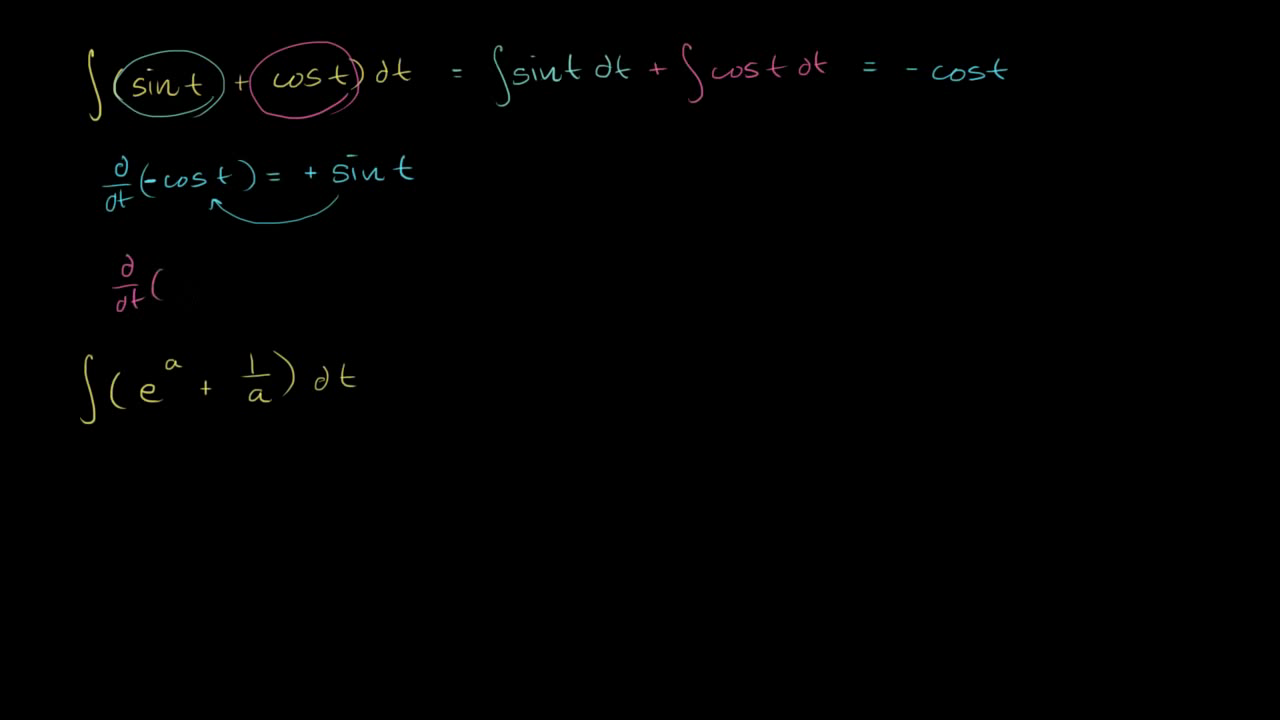 ∫(sin t + cos t) dt = ∫sin t dt + ∫cos t dt = - cos t
d/dt (-cos t) = + sin t
d/dt (
∫(e^a + 1/a) dt